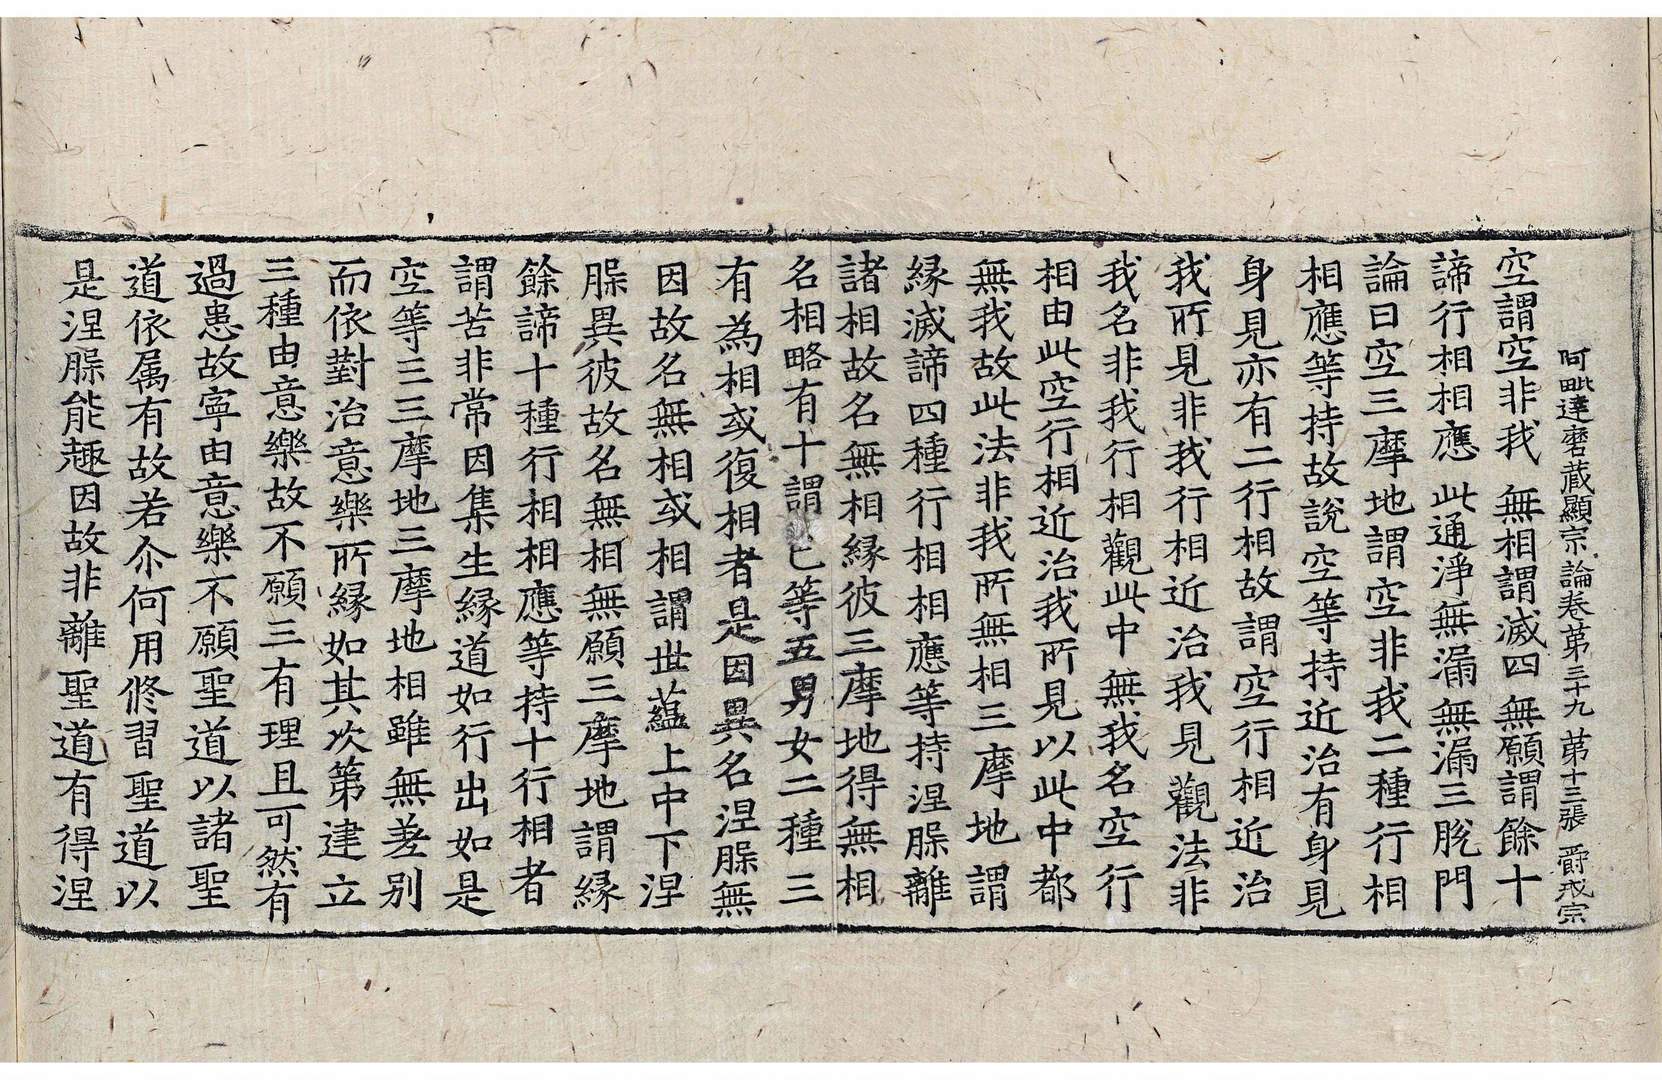 阿毗達磨藏顯宗論卷第三十九 第十三張 爵 戒宗
空謂空非我 無相謂滅四 無願謂餘十
諦行相相應 此通淨無漏 無漏三脫門
論曰空三摩地謂空非我二種行相
相應等持故說空等持近治有身見
身見亦有二行相故謂空行相近治
我所見非我行相近治我見觀法非
我名非我行相觀此中無我名空行
相由此空行相近治我所見以此中都
無我故此法非我所無相三摩地謂
緣滅諦四種行相相應等持涅槃離
諸相故名無相緣彼三摩地得無相
名相略有十謂色等五男女二種三
有為相或復相者是因異名涅槃無
因故名無相或相謂世蘊上中下涅
槃異彼故名無相無願三摩地謂緣
餘諦十種行相相應等持十行相者
謂苦非常因集生緣道如行出如是
空等三三摩地三摩地相雖無差別
而依對治意樂所緣如其次第建立
三種由意樂故不願三有理且可然有
過患故寧由意樂不願聖道以諸聖
道依属有故若尒何用修習聖道以
是涅槃能趣因故非離聖道有得涅